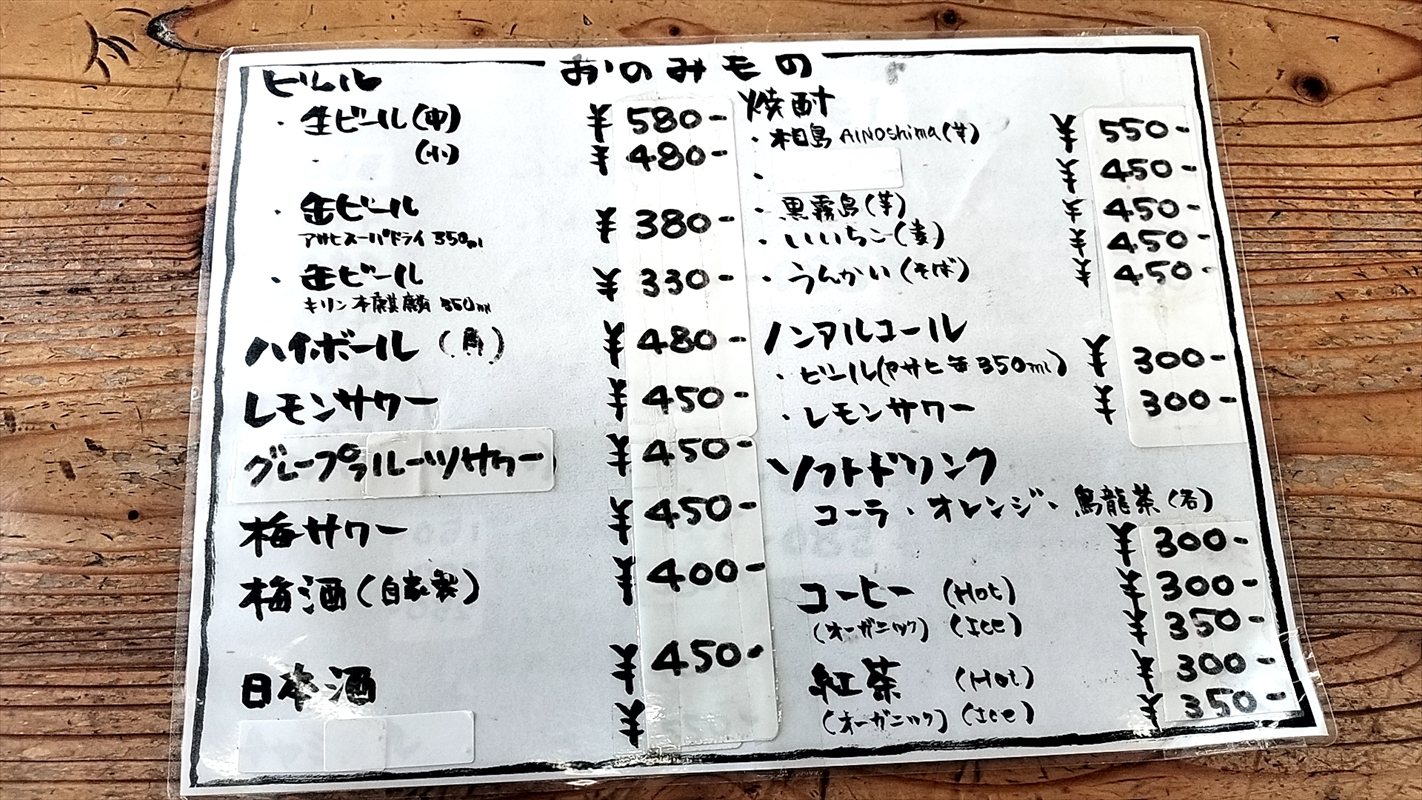 おのみもの
ビール
・生ビール(中) ¥580-
・(小) ¥480-
・缶ビール ¥380-
アサヒスーパドライ 350ml
・缶ビール ¥330-
キリン本麒麟 350ml
ハイボール(角) ¥480-
レモンサワー ¥450-
グレープフルーツサワー ¥450-
梅サワー ¥450-
梅酒(自家製) ¥400-
日本酒 ¥450-
¥
焼酎
・相島 AINOshima(芋) ¥550-
・ ¥450-
・黒霧島(芋) ¥450-
・いいちこ(麦) ¥450-
・うんかい(そば) ¥450-
ノンアルコール
・ビール(アサヒ缶350ml) ¥300-
・レモンサワー ¥300-
ソフトドリンク
コーラ・オレンジ・烏龍茶(各) ¥300-
コーヒー (Hot) ¥300-
(オーガニック) (Ice) ¥350-
紅茶 (Hot) ¥300-
(オーガニック) (Ice) ¥350-